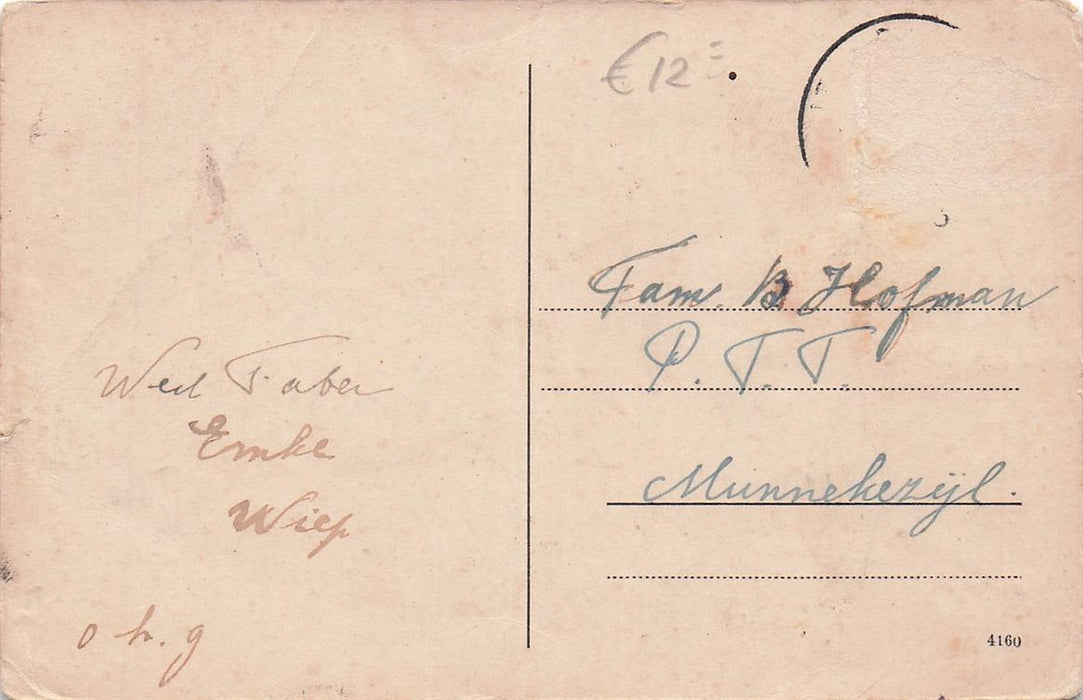 € 12
Fam. B Hofman
P. T. T.
Munnekezijl.
Wed Faber
Emke
Wiep
o h. g
4160